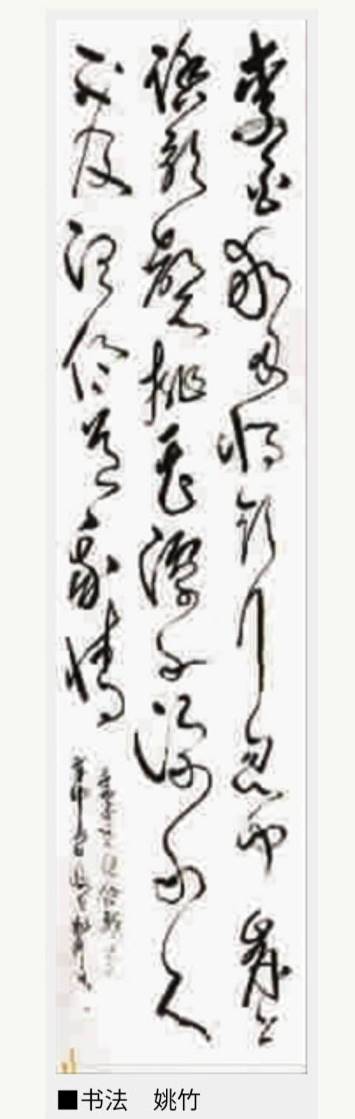 李白乘舟将欲行忽闻岸上
踏歌声桃花潭水深千尺
不及汪伦送我情
■书法 姚竹